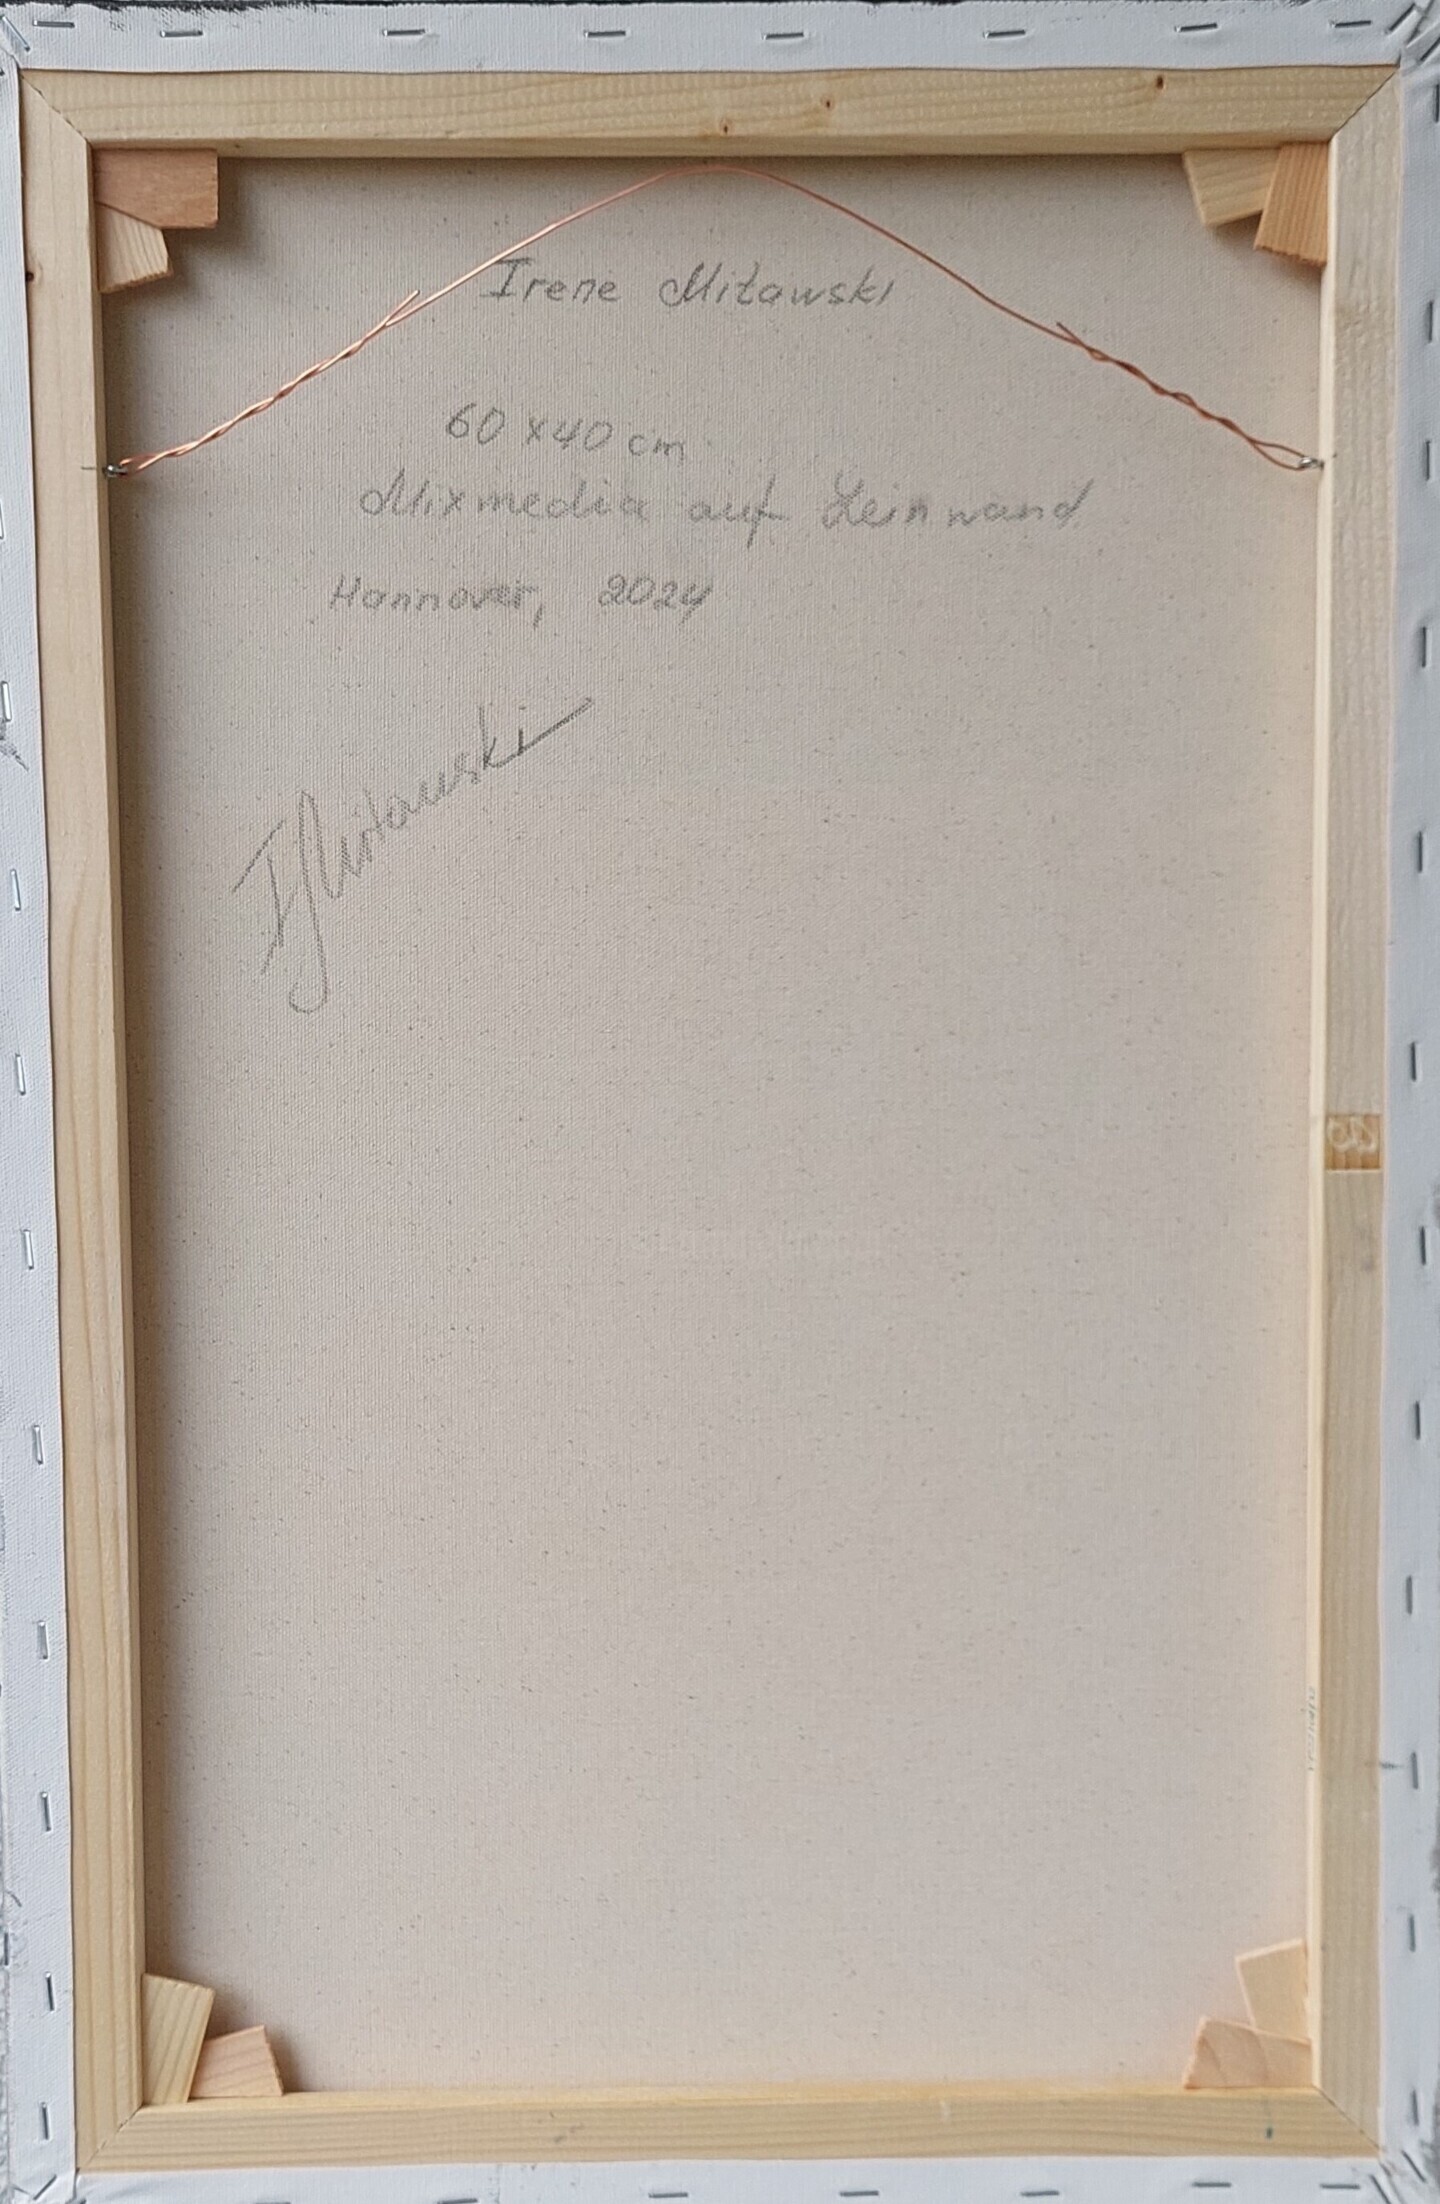 Irene Mitawski
60 x 40 cm
Mixmedia auf Leinwand
Hannover, 2024
I Mitawski